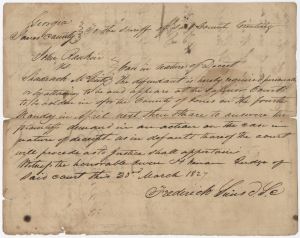 Georgia
Jones County } To the Sheriff of Said County Greeting
John Rankin
Case in nature of Deceit
The defendant is hereby required personally
or by attorney to be and appear at the Superior Court
to be holden in & for the County of Jones on the fourth
Monday in April next then & there to answer the
plaintiffs demand in an action on the case in
nature of deceit as in default hereof the court
will proceed as to Justice shall appertain
Witness the honorable Owen H Kenan Judge of
Said court this 20 March 1827
Frederick Sims D Sc